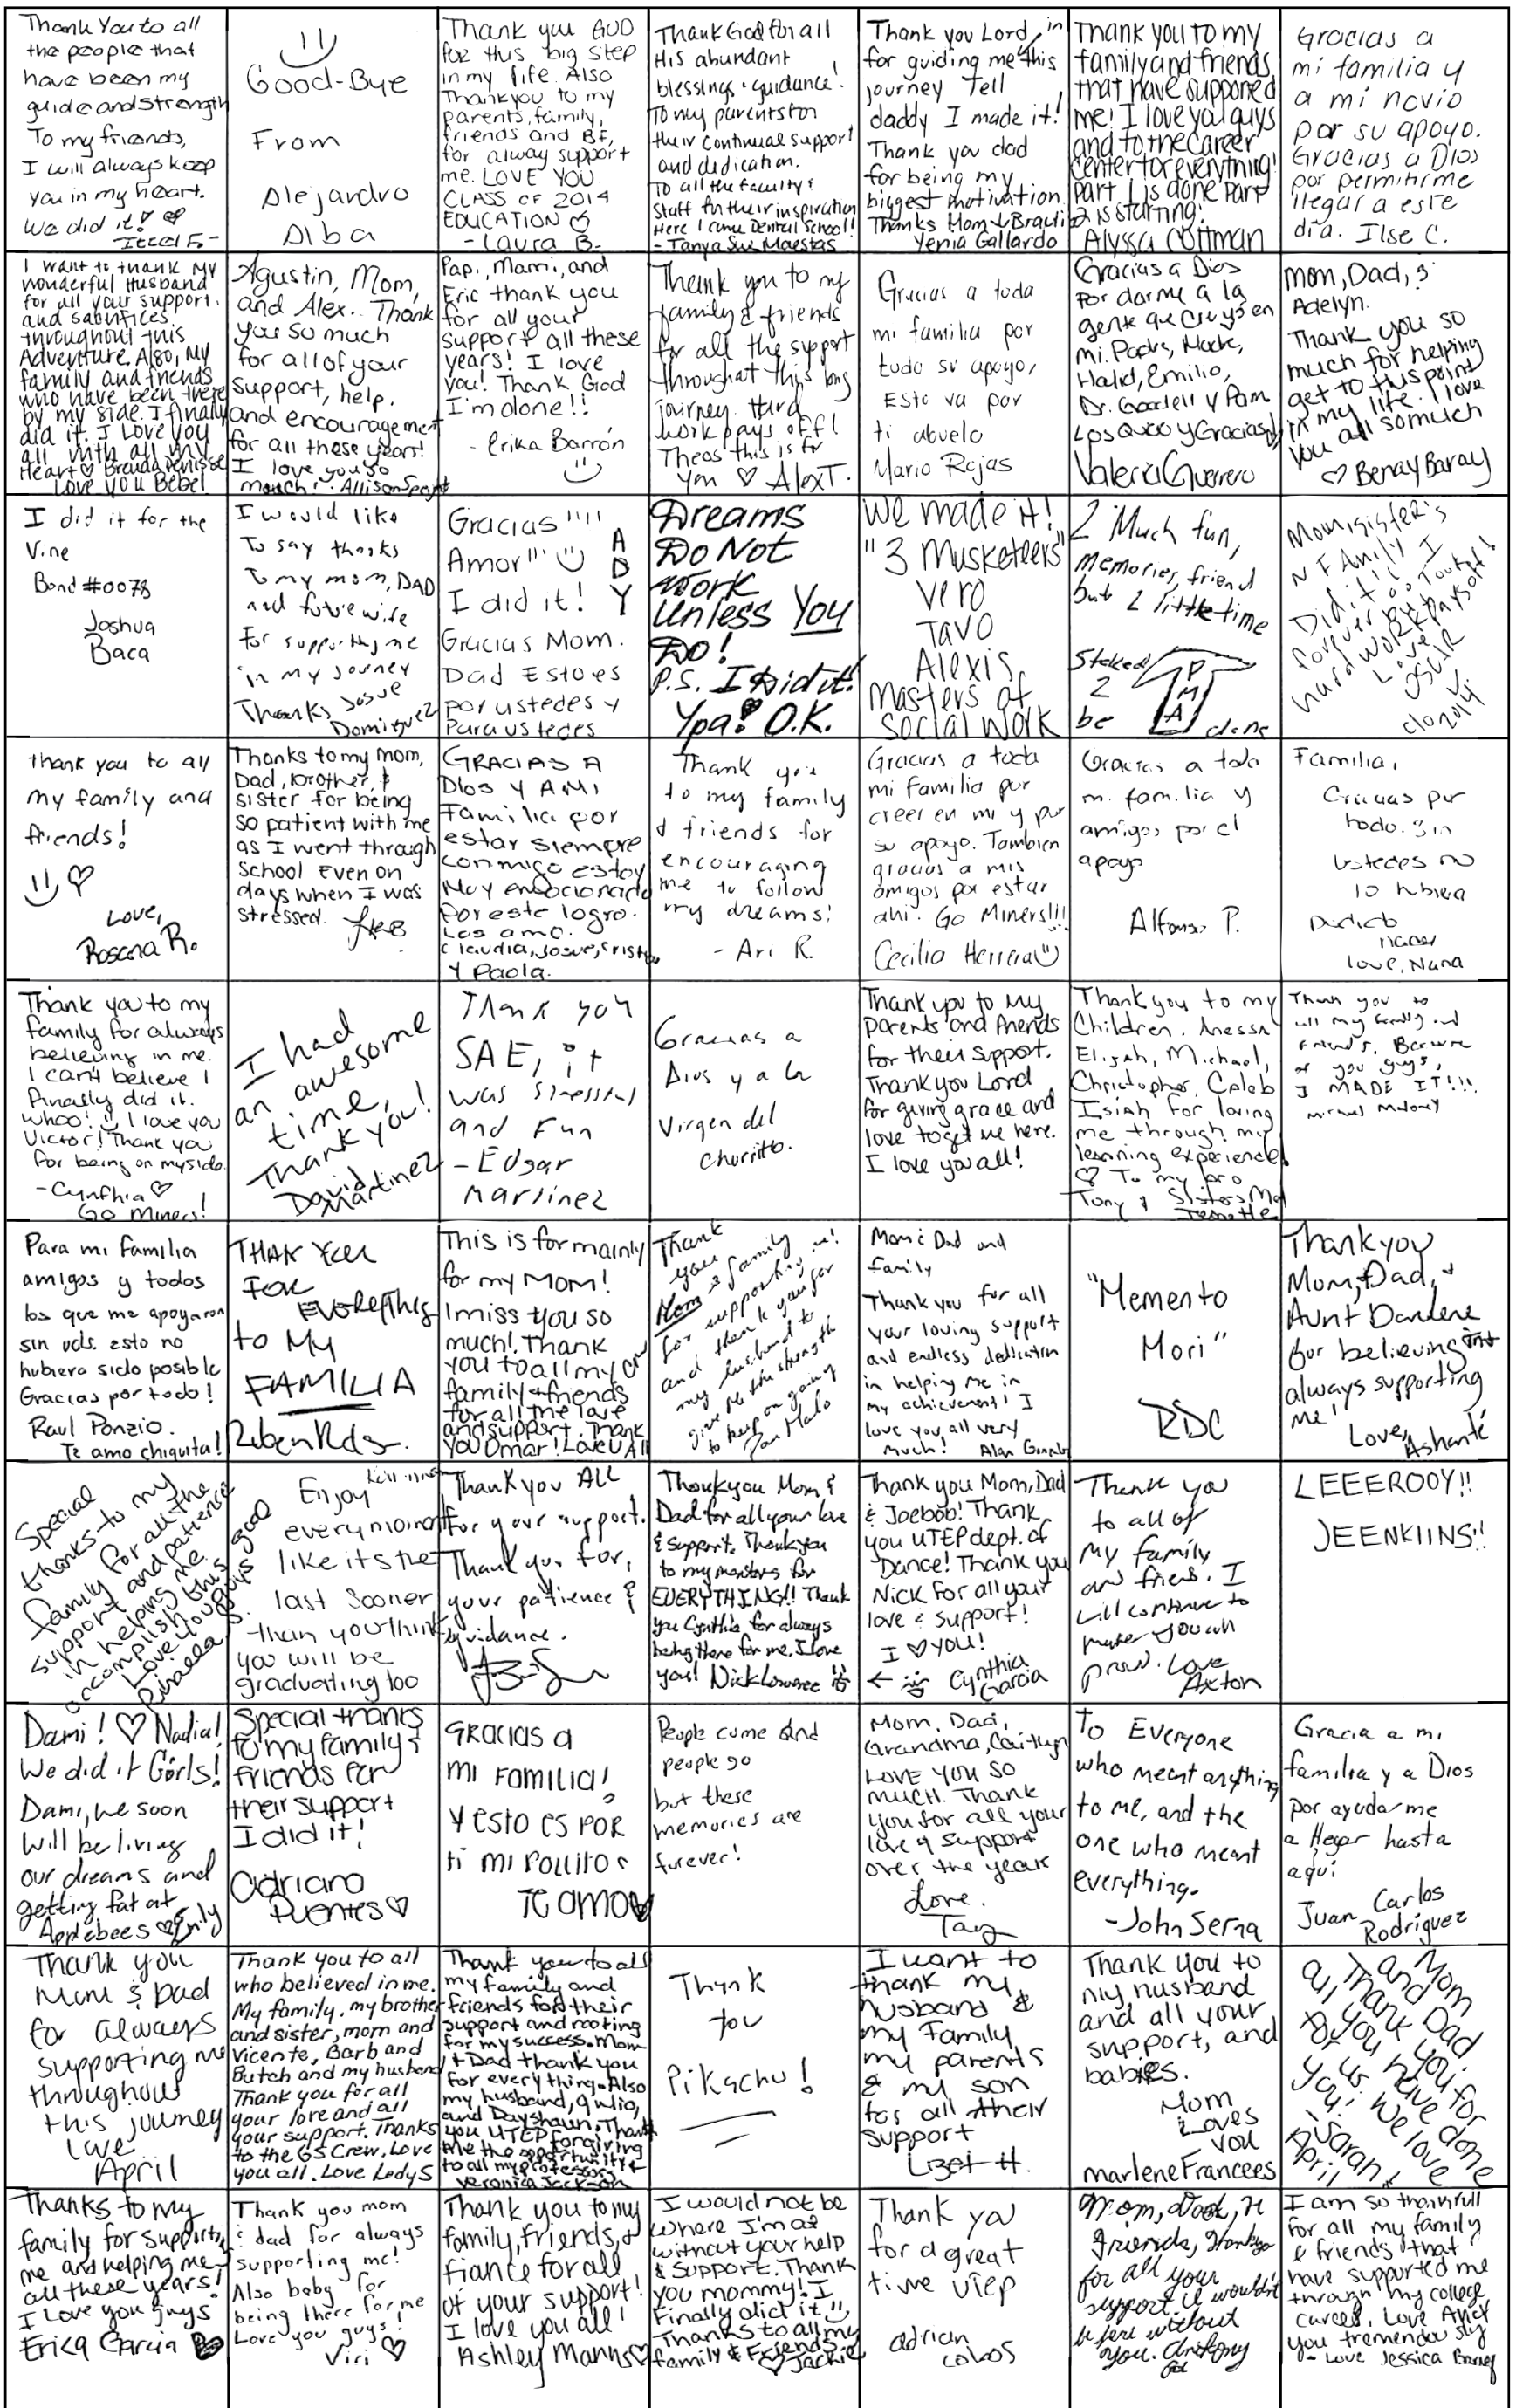 Thank You to all
the people that
have been my
guide and strength
To my friends,
I will always keep
you in my heart.
We did it!
Itcel F.-
Good-Bye
From
Alejandro
Alba
Thank you GOD
for this big step
in my life. Also
Thankyou to my
parents, family,
friends and BF,
for alway support
me. LOVE YOU.
CLASS OF 2014
EDUCATION
- Laura B.
Thank God for all
His abundant
blessings & guidance!
To my parents for
their continual support
and dedication.
To all the faculty &
Staff for their inspiration
Here I come Dental School!!
- Tanya Sue Maestas
Thank you Lord
for guiding me in this
journey Tell
daddy I made it!
Thank you dad
for being my
biggest motivation
Thanks Mom & Braulio
Yenia Gallardo
Thank you to my
family and friends
that have supported
me! I love yal guys
and to the career
center for everything!
part 1 is done part
2 is starting!
Alyssa Cottman
Gracias a
mi familia y
a mi novio
por su apoyo.
Gracias a Dios
por permitirme
llegar a este
día. Ilse C.
I want to thank my
wonderful Husband
for all your support.
and sacrifices
throughout this
Adventure. Also, My
family and friends
who have been there
by my side. I finally
did it. I Love you
all with all my
Heart ♡ Brenda Denisse
Love you Bebe!
Agustin, Mom,
and Alex.. Thank
you so much
for all of your
support, help.
and encouragement
for all these years!
I love you so
mouch! Allison
Papi, Mami, and
Eric thank you
for all your
support all these
years! I love
you! Thank God
I'm done!!
- Erika Barrón
Thank you to my
family & friends
for all the support
throughout this long
journey. Hard
work pays off!
Theos this is for
you ♡ Alex T.
Gracias a toda
mi familia por
tudo su apoyo,
Esto va por
ti abuelo
Mario Rojas
Gracias a Dios
por darme a la
gente que creyó en
mi. Padre, Madre,
Halid, Emilio,
Dr. Goodell y Pam
Los Quiero y Gracias
Valeria Guerrero
Mom, Dad, &
Adelyn.
Thank you so
much for helping
get to this point
in my life. I love
you all so much
♡ Benay Baray
I did it for the
Vine
Bond #0078
Joshua
Baca
I would like
To say thanks
To my mom, DAD
and future wife
For supporting me
in my journey
Thanks Josue
Dominguez
Gracias
Amor
I did it!
ABY
Gracias Mom.
Dad Esto es
por ustedes y
Para ustedes
Dreams
Do Not
Work
Unless You
Do!
P.S. I Did it!
Ypa! O.K.
We made it!
"3 Musketeers"
Vero
Tavo
Alexis
Masters of
Social Work
2 Much fun,
Memories, friend
but 2 little time
Stoked
2
be
PMA
done
Mom, sister's
N FAmily I
Did it!!
forever
hard work paysoff!
Love
c/o 2014
thank you to all
my family and
friends!
Love,
Roscana R.
Thanks to my mom,
Dad, brother, &
sister for being
so patient with me
as I went through
School Even on
days when I was
stressed.
GRACIAS A
Dios Y A MI
Familia por
estar siempre
conmigo estoy
Muy emocionado
Por este logro.
Los amo.
Claudia, Josue, Cristy
Y Paola.
Thank you
to my family
& friends for
encouraging
me to follow
my dreams!
- Ari R.
Gracias a toda
mi familia por
creer en mi y por
su apoyo. Tambien
gracias a mis
amigos por estar
ahi. Go Miners!!!
Cecilia Herrera
Gracias a toda
mi familia y
amigos por el
apoyo
Alfonso P.
Familia,
Gracias por
todo. Sin
ustedes no
lo hubiera
Podido
hacer
love, Nana
Thank you to my
family for always
believing in me.
I can't believe I
finally did it.
Whoo! I love you
Victor! Thank you
for being on my side.
- Cynthia ♡
Go Miners!
I had
an awesome
time,
Thank you!
David
Martinez
Thank you
SAE, it
was stressful
and Fun
- Edgar
Martinez
Gracias a
Dios y a la
Virgen del
Chorrito.
Thank you to my
parents and friends
for their support.
Thank you Lord
for giving grace and
love to get me here.
I love you all!
Thank you to my
Children. Anessa
Elijah, Michael,
Christopher, Caleb
Isiah for loving
me through my
learning experience
♡ To my bro
Tony & Sisters Mel
Jeanette
Thank you to
all my family and
friends. Because
of you guys,
I MADE IT!!!
Michael Maloney
Para mi familia
amigos y todos
los que me apoyaron
sin uds. esto no
hubiera sido posible
Gracias por todo!
Raul Ponzio.
Te amo chiquita!
THAK YOU
FOR
EVEREYTHIS
to My
FAMILIA
This is for mainly
for my Mom!
I miss you so
much!. Thank
you to all my
family & friends
for all the love
and support. Thank
you Omar! Love U All
Thank
you family
Mom &
for supporting me!
and thank you for
my husband to
give me the strength
to keep on going
Mom & Dad and
family
Thank you for all
your loving support
and endless dedication
in helping me in
my achievement! I
love you all very
much! Alan
"Memento
Mori"
RDC
Thank you
Mom, Dad, +
Aunt Darlene
for believing in +
always supporting
me!
Love, Ashanté
Special
thanks to my
family for all the
support and patience
in helping me
accomplish this goal
Love you guys
Enjoy
every moment
like its the
last sooner
than you think
you will be
graduating too
Thank you ALL
for your support.
Thank you for,
your patience &
guidance.
Thank you Mom &
Dad for all your love
& support. Thank you
to my mentors for
EVERYTHING!! Thank
you Cynthia for always
being there for me. I love
you! Nick Lowree
Thank you Mom, Dad
& Joeboo! Thank
you UTEP dept. of
Dance! Thank you
Nick for all your
love & support!
I ♡ you!
← Cynthia
Garcia
Thank you
to all of
my family
and friens. I
will continue to
make you all
proud. Love
Axton
LEEEROOY!!
JEENKIINS!!
Dami! ♡ Nadia!
We did it Girls!
Dami, we soon
will be living
our dreams and
getting fat at
Applebees Emily
Special thanks
to my family &
friends for
their support
I did it!
Adriana
Puentes ♡
GRACIAS a
mi Familia!
Y esto es por
ti mi Pollito
Te amo
People come and
people go
but these
memories are
forever!
Mom, Dad,
Grandma, Caitlyn
LOVE YOU SO
MUCH. Thank
you for all your
love & support
over the year
Love.
Tay
To Everyone
who meant anything
to me, and the
one who meant
everything.
- John Serna
Gracia a mi
familia y a Dios
por ayudarme
a llegar hasta
aquí
Juan Carlos
Rodríguez
Thank you
Mom & Dad
for always
supporting me
throughout
this journey
Love
April
Thank you to all
who believed in me.
My family, my brother
and sister, mom and
Vicente, Barb and
Butch and my husband
Thank you for all
your love and all
your support. Thanks
to the GS Crew. Love
you all. Love Ledys
Thank you to all
my family and
friends for their
support and rooting
for my success. Mom
+ Dad thank you
for everything. Also
my husband, Julio,
and Dayshaun. Thank
you UTEP for giving
me the opportunity &
to all my professors
Veronica Jackson
Thank
you
Pikachu!
I want to
thank my
husband &
my Family
my parents
& my son
for all their
support
Lizet H.
Thank you to
my husband
and all your
support, and
babies.
Mom
Loves
you
Marlene Francees
Mom
and Dad
Thank you for
all you have done
for us. We love
you!
Sarah &
April
Thanks to my
family for supporting
me and helping me
all these years!
I love you guys
Erica Garcia
Thank you mom
& dad for always
supporting me!
Also baby for
being there for me
Love you guys!
Viri ♡
Thank you to my
family, friends, &
fiance for all
of your support!
I love you all!
Ashley Manns ♡
I would not be
where I'm at
without your help
& support. Thank
you mommy! I
Finally did it!!
Thanks to all my
family & Friends.
♡ Jackie
Thank you
for a great
time UTEP
adrian
cobos
Mom, Dad, &
Friends, thank you
for all your
support. I wouldn't
be here without
you. Anthony
I am so thankfull
for all my family
& friends that
have supported me
through my college
career. Love
you tremendously
- Love Jessica